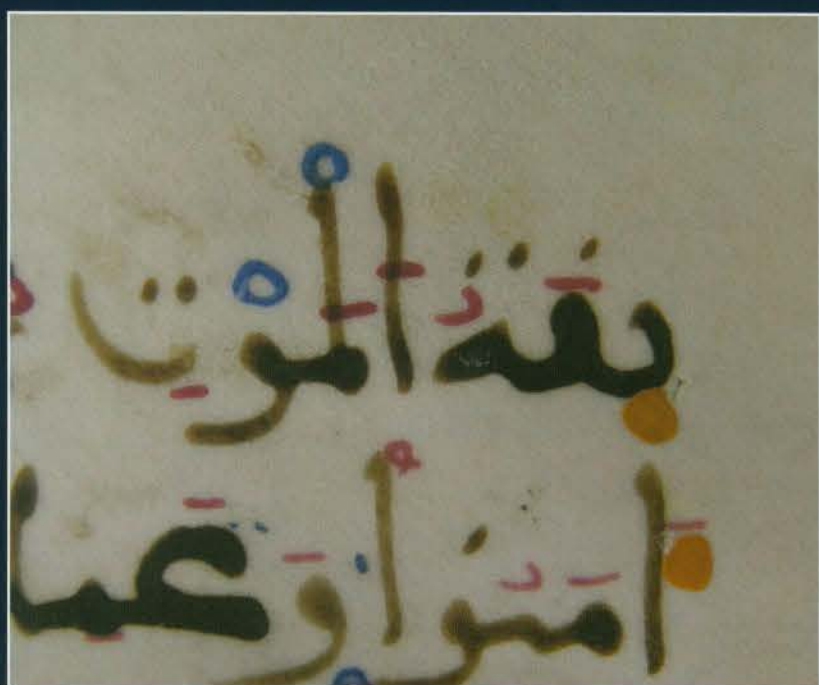 ئقَةُ اَلْمَوْتِ
ءَامَنُواْ وَعَمِل